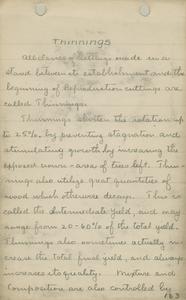 Thinnings
All classes of cuttings made in a
stand between its establishment and the
beginning of Reproduction cuttings are
called Thinnings.
Thinnings shorten the rotation up
to 25% by preventing stagnation and
stimulating growth by increasing the
crown-area of trees left. Thin-
nings also utilize great quantities of
wood which otherwise decays. This is
called the Intermediate Yield, and may
range from 20-60% of the total yield.
Thinnings also sometimes actually in
crease the total final yield, and always
increases its quality. Mixture and
Composition are also controlled by